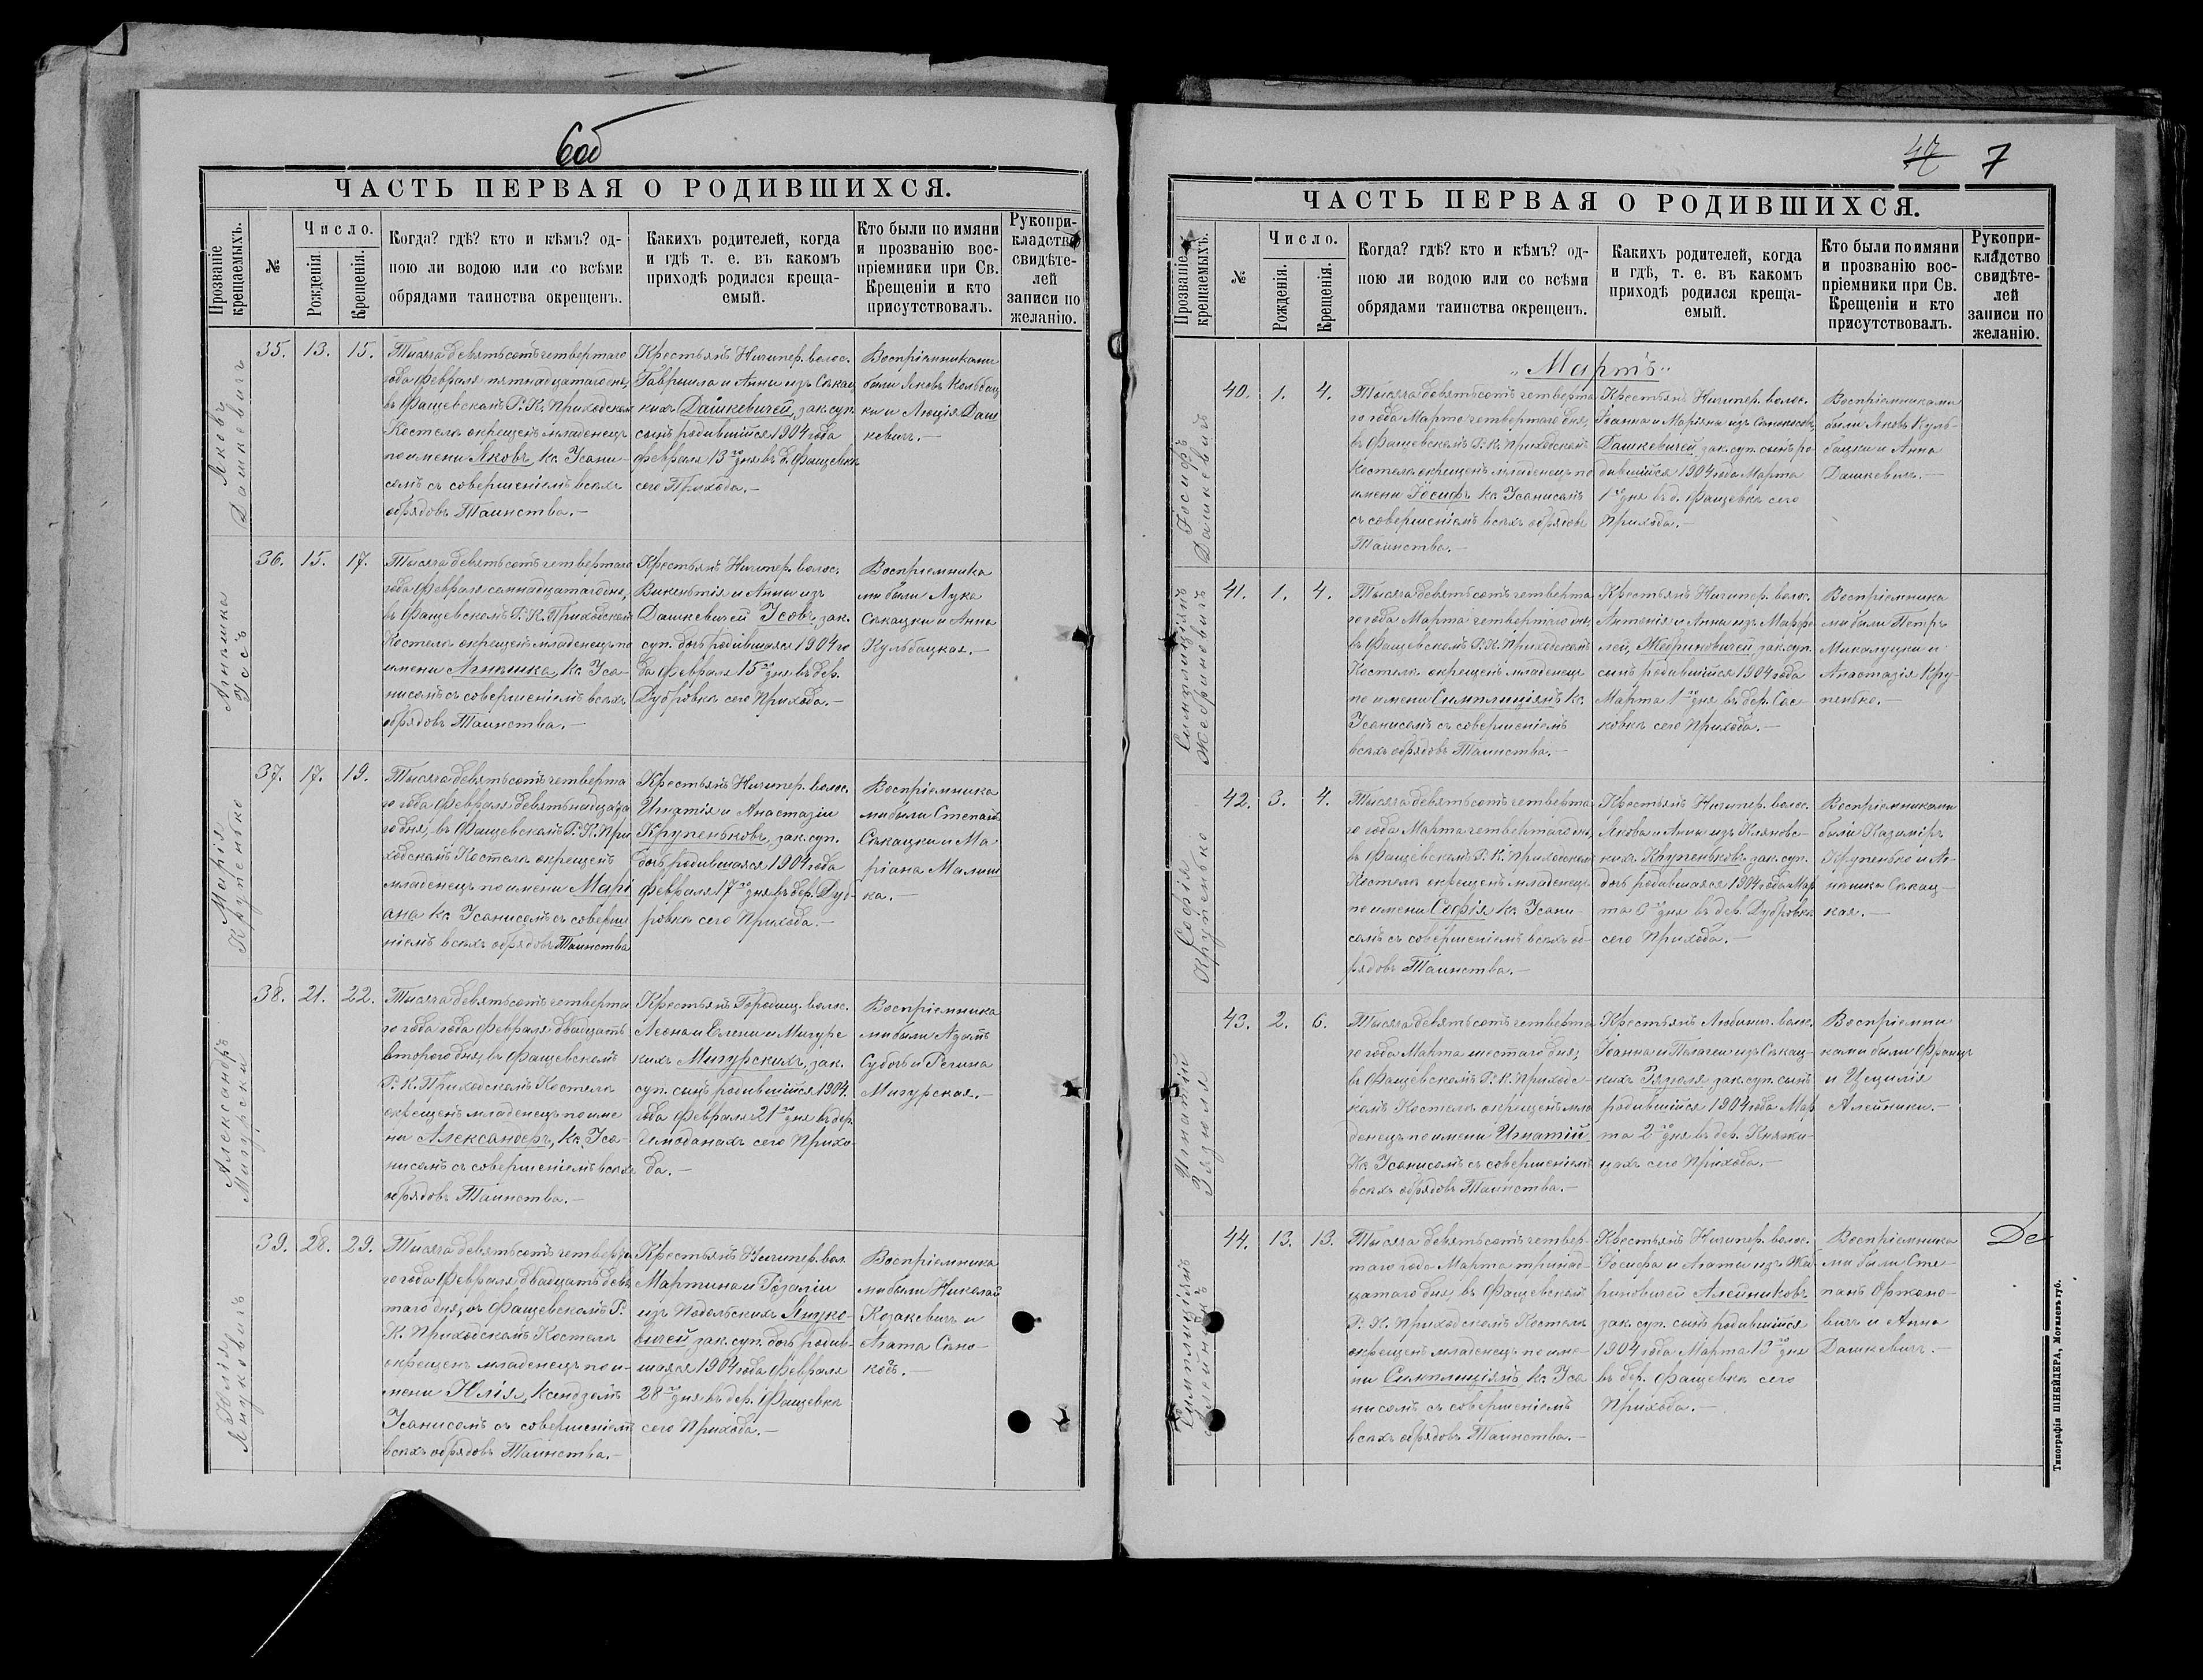 6об
ЧАСТЬ ПЕРВАЯ О РОДИВШИХСЯ.
Прозваніе крещаемыхъ.
№
Число.
Рожденія.
Крещенія.
Когда? гдѣ? кто и кѣмъ? од-
ною ли водою или со всѣми
обрядами таинства окрещенъ.
Какихъ родителей, когда
и гдѣ т. е. въ какомъ
приходѣ родился креща-
емый.
Кто были по имяни
и прозванію вос-
пріемники при Св.
Крещеніи и кто
присутствовалъ.
Рукопри-
кладство
свидѣте-
лей
записи по
желанію.
Яковъ
Дашкевичъ
35. 13. 15.
Тысяча девятьсотъ четвертаго
года Февраля пятнадцатаго дня,
въ Фащевскомъ Р. К. Приходском
Костелѣ окрещенъ младенецъ
по имени Яковъ, Кс. Усани-
семъ съ совершеніемъ всѣхъ
обрядовъ Таинства.—
Крестьянъ Ничипер. волос.
Гавриила и Анны изъ Сѣкац
кихъ Дашкевичей, зак. суп.
сынъ родившійся 1904 года
Февраля 13го дня въ д. Фащевкѣ
сего Прихода.—
Воспріемниками
были Яковъ Кольбац
ки и Люція Даш
кевичъ.—
Агнешка
Усъ
36. 15. 17.
Тысяча девятьсотъ четвертаго
года Февраля семнадцатаго дня,
въ Фащевскомъ Р. К. Приходском
Костелѣ окрещенъ младенецъ по
имени Агнешка, Кс. Уса-
нисомъ съ совершеніемъ всѣхъ
обрядовъ Таинства.—
Крестьянъ Ничипер. волос.
Викентія и Анны изъ
Дашкевичей Усовъ, зак.
суп. дочь родившаяся 1904 го
да Февраля 15го дня въ дер.
Дубровкѣ сего Прихода.—
Воспріемника
ми были Лука
Сѣкацки и Анна
Кульбацкая.—
Марія
Крупенько
37. 17. 19.
Тысяча девятьсотъ четверта
го года Февраля девятнадцата
го дня, въ Фащевскомъ Р. К. При
ходскомъ Костелѣ окрещенъ
младенецъ по имени Марі
ана Кс. Усанисомъ съ соверше
ніемъ всѣхъ обрядовъ Таинства
Крестьянъ Ничипер. волос.
Игнатія и Анастазіи
Крупеньковъ, зак. суп.
дочь родившаяся 1904 года
Февраля 17го дня въ дер. Дуб-
ровкѣ сего Прихода.—
Воспріемника
ми были Степанъ
Сѣкацки и Ма
ріана Малыш
ка.—
Александръ
Мигурски
38. 21. 22.
Тысяча девятьсотъ четверта
го года года Февраля двадцать
второго дня, въ Фащевскомъ
Р. К. Приходскомъ Костелѣ
окрещенъ младенецъ по име
ни Александръ, Кс. Уса-
нисомъ съ совершеніемъ всѣхъ
обрядовъ Таинства.—
Крестьянъ Городищ. волос.
Леона и Елены и Мигурс
кихъ Мигурскихъ, зак.
суп. сынъ родившійся 1904.
года Февраля 21го дня въ дер.
сего Прихо
да.—
Воспріемника
ми были Адамъ
Суботъ и Регина
Мигурская.—
Юлія
Янцковичъ
39. 28. 29.
Тысяча девятьсотъ четверта
го года Февраля двадцать девя
таго дня, въ Фащевскомъ Р.
К. Приходскомъ Костелѣ
окрещенъ младенецъ по и-
мени Юлія, Ксендзомъ
Усанисомъ съ совершеніемъ
всѣхъ обрядовъ Таинства.—
Крестьянъ Ничипер. вол.
Мартина и Розаліи
изъ Подольскихъ Янцко-
вичей зак. суп. дочь родив-
шаяся 1904 года Февраля
28го дня въ дер. Фащевкѣ
сего Прихода.—
Воспріемника
ми были Николай
Козакевичъ и
Агата Сѣно-
кодъ.—
47 7
ЧАСТЬ ПЕРВАЯ О РОДИВШИХСЯ.
Прозваніе крещаемыхъ.
№
Число.
Рожденія.
Крещенія.
Когда? гдѣ? кто и кѣмъ? од-
ною ли водою или со всѣми
обрядами таинства окрещенъ.
Какихъ родителей, когда
и гдѣ, т. е. въ какомъ
приходѣ родился креща-
емый.
Кто были по имяни
и прозванію вос-
пріемники при Св.
Крещеніи и кто
присутствовалъ.
Рукопри-
кладство
свидѣте-
лей
записи по
желанію.
„Мартъ“
Іосифъ
Дашкевичъ
40. 1. 4.
Тысяча девятьсотъ четверта
го года Марта четвертаго дня,
въ Фащевскомъ Р. К. Приходскомъ
Костелѣ окрещенъ младенецъ по
имени Іосифъ Кс. Усанисомъ
съ совершеніемъ всѣхъ обрядовъ
Таинства.—
Крестьянъ Ничипер. волос.
Іоанна и Маріяны изъ
Дашкевичей, зак. суп. сынъ ро-
дившійся 1904 года Марта
1го дня въ д. Фащевкѣ сего
Прихода.—
Воспріемниками
были Яковъ Куль-
бацки и Анна
Дашкевичъ.—
Симплиціянъ
Жебриковичъ
41. 1. 4.
Тысяча девятьсотъ четверта
го года Марта четвертаго дня,
въ Фащевскомъ Р. К. Приходскомъ
Костелѣ окрещенъ младенецъ
по имени Симплиціянъ Кс.
Усанисомъ съ совершеніемъ
всѣхъ обрядовъ Таинства.—
Крестьянъ Ничипер. волос.
Антонія и Анны изъ Марфе
лей, Жебриковичей, зак. суп.
сынъ родившійся 1904 года
Марта 1го дня въ дер. Сас
ковкѣ сего Прихода.—
Воспріемника
ми были Петръ
Микалуцки и
Анастазія Кру-
пенько.—
Софія
Крупенько
42. 3. 4.
Тысяча девятьсотъ четверта
го года Марта четвертаго дня,
въ Фащевскомъ Р. К. Приходском
Костелѣ окрещенъ младенецъ
по имени Софія Кс. Усани-
семъ съ совершеніемъ всѣхъ об-
рядовъ Таинства.—
Крестьянъ Ничипер. волос.
Якова и Анны изъ Кляновс-
кихъ Крупеньковъ зак. суп.
дочь родившаяся 1904 года Мар
та 3го дня въ дер. Дубровкѣ
сего Прихода.—
Воспріемниками
были Казиміръ
Крупенько и Аг-
нешка Сѣкац-
кая.—
Игнатій
Зязюля
43. 2. 6.
Тысяча девятьсотъ четверта
го года Марта шестаго дня,
въ Фащевскомъ Р. К. Приходс-
комъ Костелѣ окрещенъ мла
денецъ по имени Игнатій
Кс. Усанисомъ съ совершеніемъ
всѣхъ обрядовъ Таинства.—
Крестьянъ Любинич. волос.
Іоанна и Пелагеи изъ Сѣкац-
кихъ Зязюля зак. суп. сынъ
родившійся 1904 года Мар
та 2го дня въ дер. Княжи-
цахъ сего Прихода.—
Воспріемни
ками были Францъ
и Цецилія
Алейники.—
Симплиціянъ
Алейникъ
44. 13. 13.
Тысяча девятьсотъ четвер-
таго года Марта тринад-
цатаго дня, въ Фащевскомъ
Р. К. Приходскомъ Костелѣ
окрещенъ младенецъ по име-
ни Симплиціянъ Кс. Уса
нисомъ съ совершеніемъ
всѣхъ обрядовъ Таинства.—
Крестьянъ Ничипер. волос.
Іосифа и Агаты изъ Жы-
риновичей Алейниковъ
зак. суп. сынъ родившійся
1904 года Марта 13го дня
въ дер. Фащевкѣ сего
Прихода.—
Воспріемника
ми были Сте-
панъ Фржоно-
вичъ и Анна
Дашкевичъ.—
Де
Типографія ШНЕЙДЕРА, Могилевъ губ.